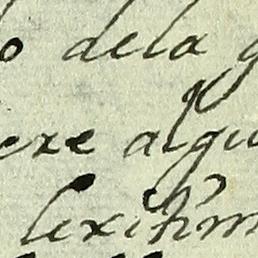 o dela g
exe algu
lexitim